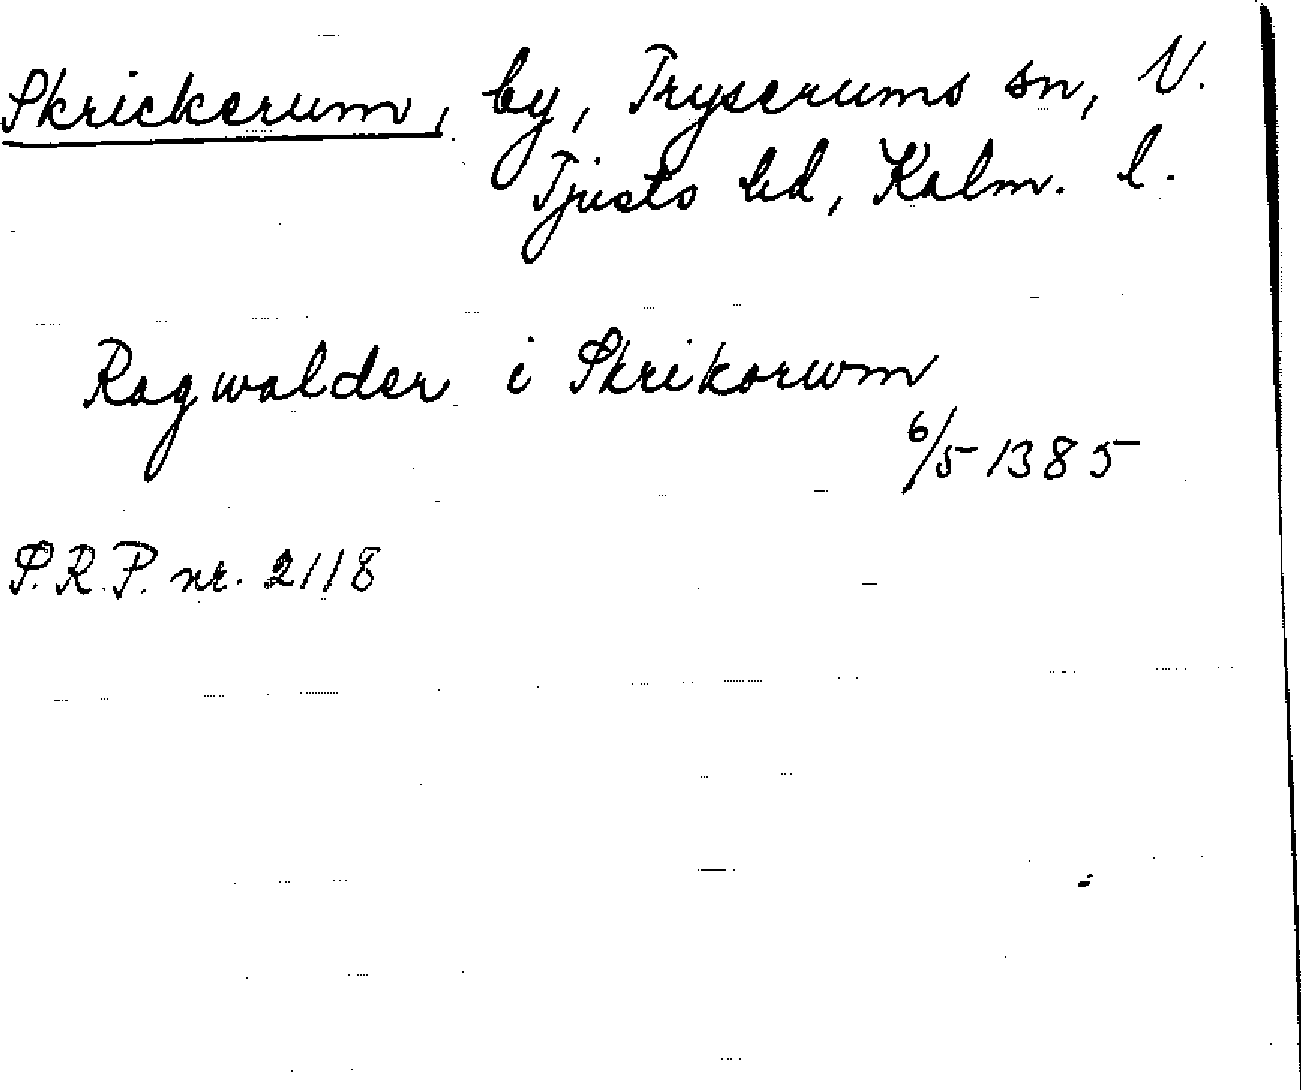 Skrickerum, by, Tryserums sn, N.
Tjusts hd, Kalm. l.
Ragwalder i Skrikorwm
6/5 1385
S.R.P. nr. 2118